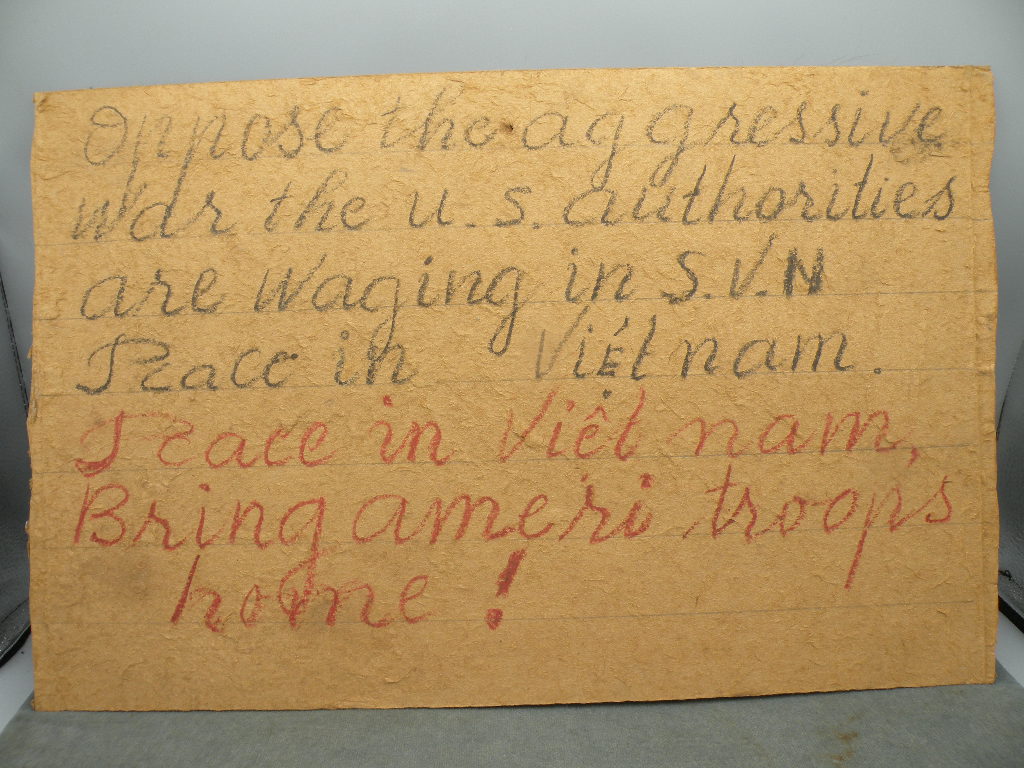 Oppose the aggressive
war the U.S. authorities
are waging in S.V.N
Peace in Việt nam.
Peace in Việt nam,
Bring ameri troops
home !